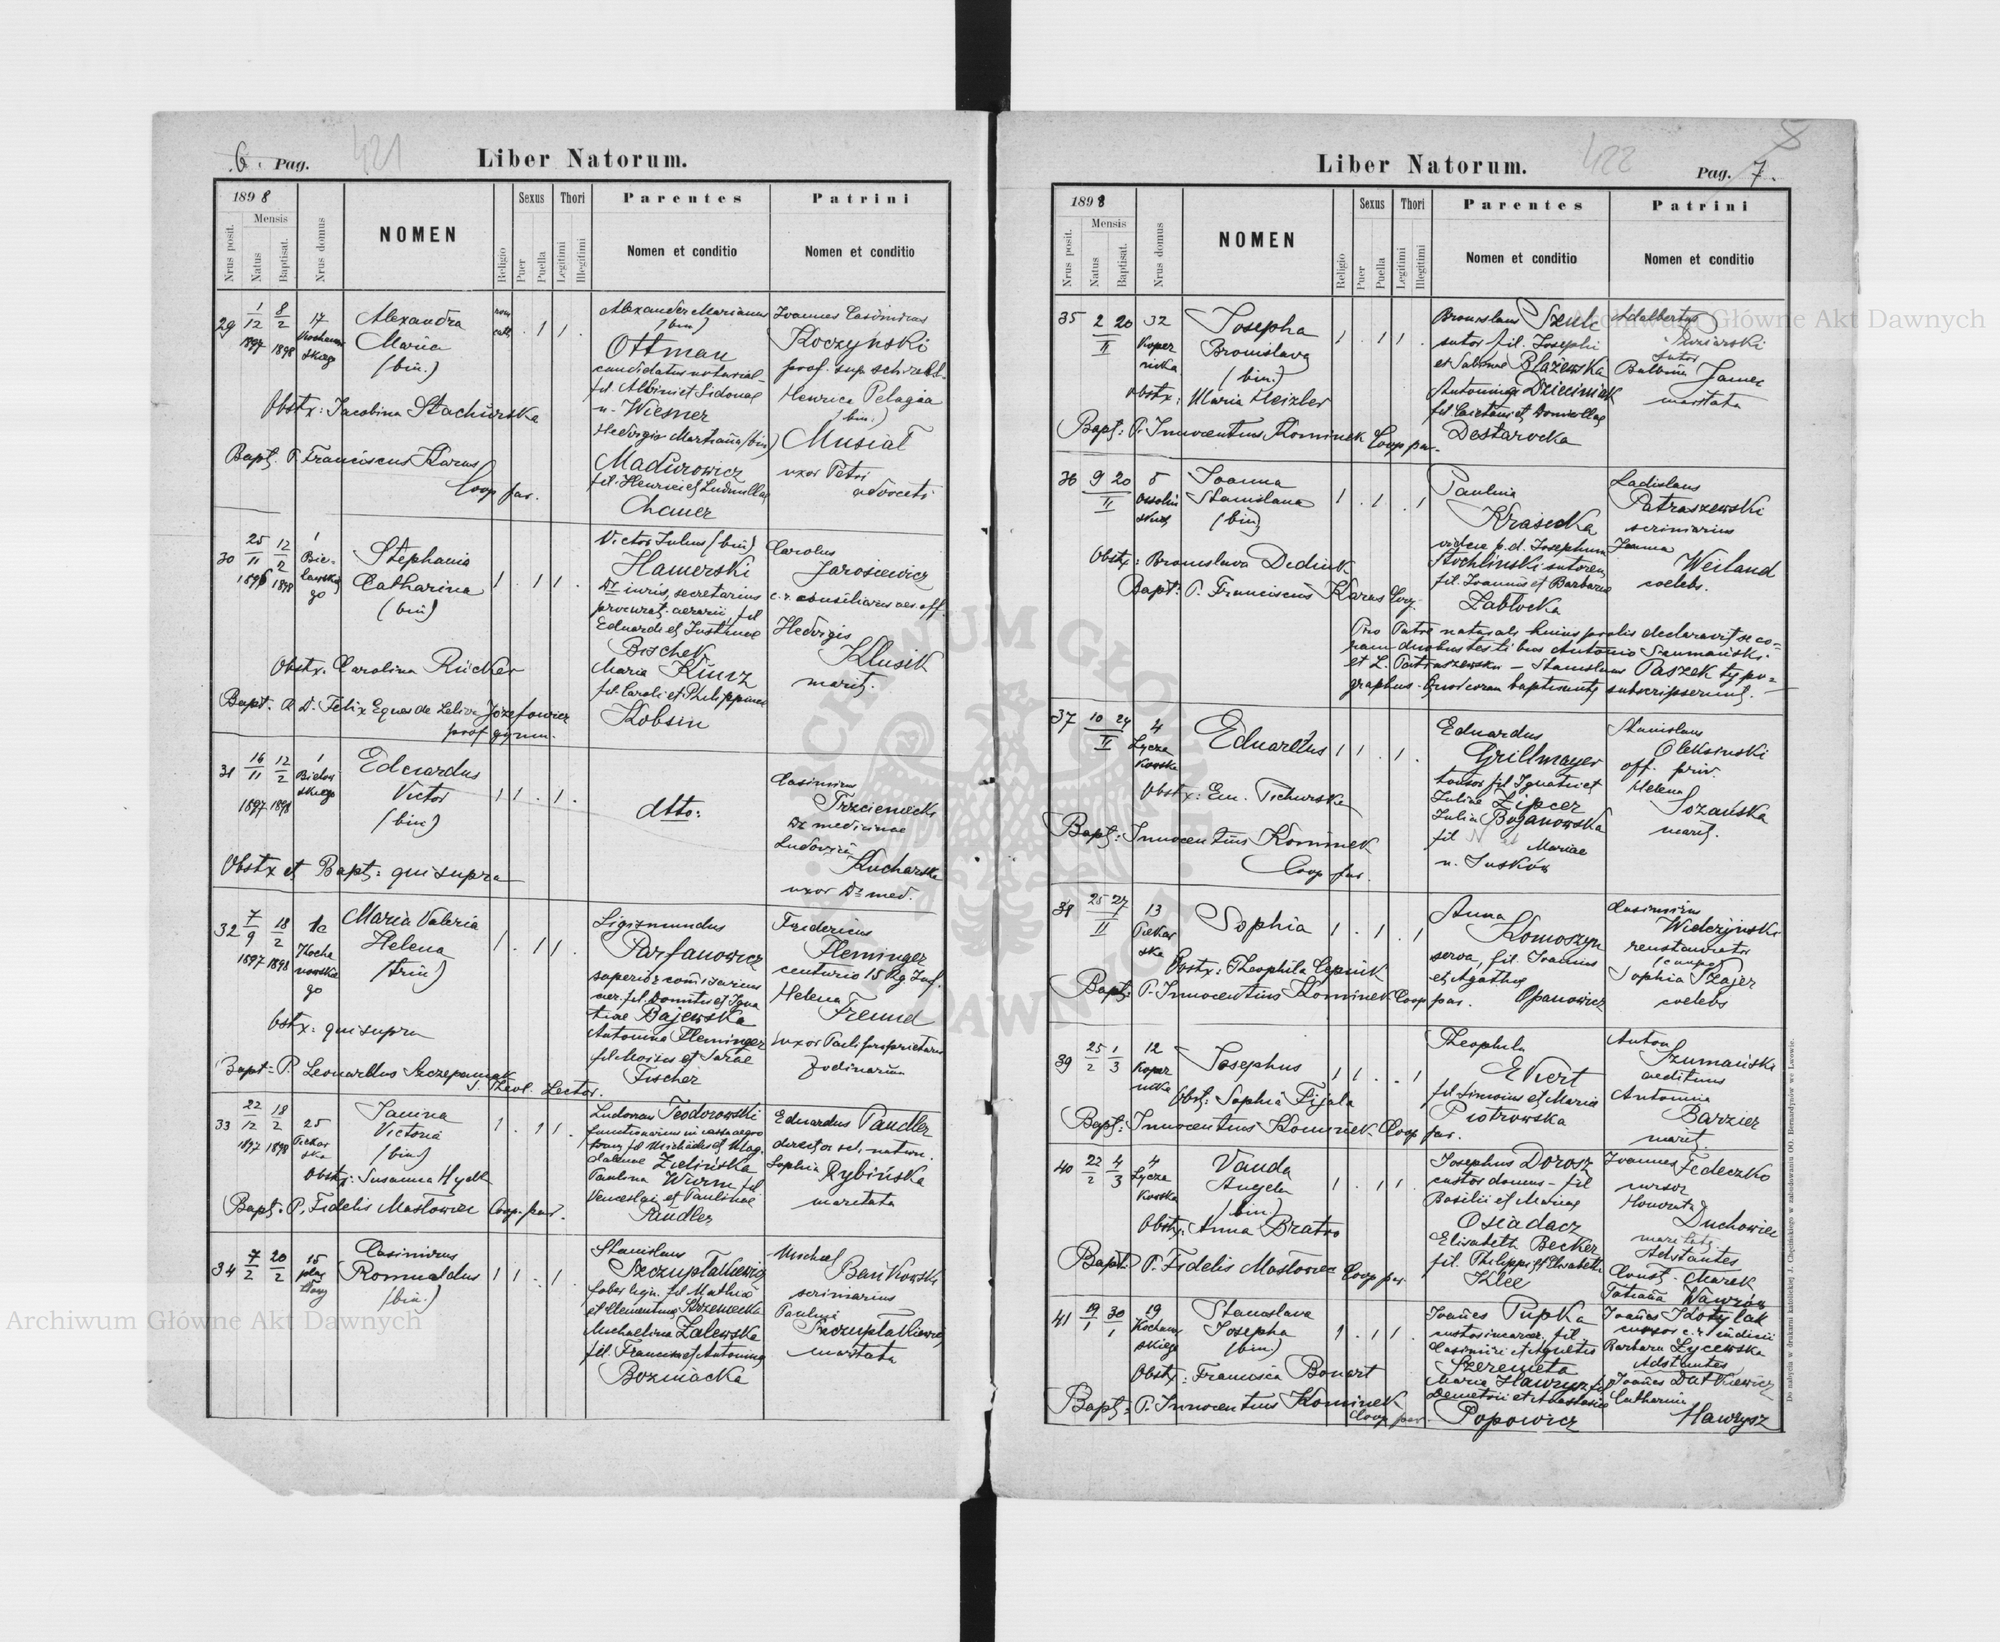 6. Pag.
421
Liber Natorum.
1898
Mensis
Nrus posit.
Natus
Baptisat.
Nrus domus
NOMEN
Religio
Sexus
Puer
Puella
Thori
Legitimi
Illegitimi
Parentes
Nomen et conditio
Patrini
Nomen et conditio
29
1/12 1897
8/2 1898
17
Alexandra
Maria
(bin.)
1 1
Alexander Marianus
(bin)
Ottman
candidatus notarial-
fil. Albini et Sidoniae
n. Wiesner
Hedvigis Martiana (bin)
Madurowicz
fil. Henrici et Ludmillae
Chauer
Joannes Casimirus
Koczyński
Henrica Pelagia
(bin.)
Musiał
uxor Petri
advocati
Obstx: Jacobina Stachurska
Bapt. P. Franciscus Karus
Coop par.
30
25/11 1896
12/2 1898
1
Bie-
lawski
go
Stephania
Catharina
(bin)
1 1 1
Victor Julius (bin)
Hamerski
Dr iuris, secretarius
procurat. aerarii, fil
Eduardi et Justinae
Boschek
Maria Künz
fil Caroli et Philippinae
Kobsin
Carolus
Jarosiewicz
c. r. consiliarius aes. off.
Hedvigis
Klusik
marit.
Obstx. Carolina Rücker
Bapt. R. D. Felix Eques de Leliva Józefowicz
prof gymn.
31
16/11 1897
12/2 1898
1
Bielow
skiego
Eduardus
Victor
(bin)
1 1 1
dtto:
Casimirus
Trzcieniecki
Dr medicinae
Ludovica
Kucharska
uxor Dr med.
Obstx et Bapt: qui supra
32
7/9 1897
18/2 1898
1a
Kocha
nowskie
go
Maria Valeria
Helena
(trin)
1 1 1
Sigismundus
Parfanowicz
superior comisarius
aer. fil. Donati et Igna
tiae Bajewska
Antonina Fleminger
fil Moises et Sarae
Fischer
Fridericus
Fleminger
centurio 15 Rg. Inf.
Helena
Freund
uxor Pauli proprietarii
Obstx: qui supra
Bapt: P. Leonardus Szczepaniak
S. Theol. Lector.
33
22/12 1897
18/2 1898
25
Piekar
ska
Janina
Victoria
(bin)
1 1 1
Ludovicus Teodorowski
functionarius in cassa aegro
torum fil Michaelis et Mag.
dalenae Zielińska
Paulina Wurm fil
Venceslai et Paulinae
Pandler
Eduardus Pandler
director sch. natur.
Sophia Rybińska
maritata
Obstx: Susanna Hyck
Bapt. P. Fidelis Masłowiec Coop. par.
34
7/2
20/2
15
Casimirus
Romualdus
(bin.)
1 1 1
Stanislaus
Szczupłakiewicz
faber lign. fil Mathia
et Clementinae Strzemecka
Michaelina Zalewska
fil. Francisci et Antoninae
Bozniacka
Michael
Bańkowski
scriniarius
Paulina
Szczupłakiewicz
maritata
422
Liber Natorum.
Pag. 7.
1898
Mensis
Nrus posit.
Natus
Baptisat.
Nrus domus
NOMEN
Religio
Sexus
Puer
Puella
Thori
Legitimi
Illegitimi
Parentes
Nomen et conditio
Patrini
Nomen et conditio
35
2 20
II
32
Koper
nika
Josepha
Bronislava
(bin.)
1 1 1
Bronislaus Szulc
sutor fil. Josephi
et Sabinae Błażewska
Antonina Dzieciniak
fil Caietani et Domicellae
Destarocka
Adalbertus
sutor
Balbina Jamec
maritata
Obstx: Maria Heizler
Bapt: P. Innocentius Kominek Coop par.
36
9 20
II
5
Ossoliń
skich
Joanna
Stanislava
(bin)
1 1 1
Paulina
Krasicka
vidua p. d. Josephum
Stochliński sutorem
fil. Joannis et Barbarae
Zabłocka
Ladislaus
Patraszewski
scriniarius
Joanna
Weiland
coelebs.
Obstx: Bronislava Dediuk
Bapt: P. Franciscus Karus Coop.
Pro Patre naturali huius prolis declaravit se co-
ram duobus testibus Antonio Szumański
et L. Patraszewski - Stanislaus Paszek typo-
graphus. Quod coram baptisante subscripserunt.
37
10 24
II
4
Łycza
kowska
Eduardus
1 1 1
Eduardus
Grillmayer
tonsor fil Ignatii et
Juliae Zipcer
Julia Bojanowska
fil N et Mariae
n. Juśków
Stanislaus
Oleksinski
off. priv.
Helena
Sozańska
marit.
Obstx: Em. Tichurska
Bapt: Innocentius Kominek
Coop par.
38
25 27
II
13
Piekar
ska
Sophia
1 1 1
Anna
Komoszyn
serva, fil. Joannis
et Agathae
Opanowicz
Casimirus
Wilczyński
Sophia Szajer
coelebs
Obstx: Theophila Cepnik
Bapt: P. Innocentius Kominek Coop par.
39
25/2
1/3
12
Koper
nika
Josephus
1 1 1
Theophila
Ekiert
fil Simonis et Maria
Piotrowska
Anton
Szumański
aedituus
Antonina
Barzier
marit.
Obst: Sophia Figala
Bapt: Innocentius Kominek Coop par.
40
22/2
4/3
4
Łycza
kowska
Vanda
Angela
(bin.)
1 1 1
Josephus Dorosz
custos domus - fil
Basilii et Mariae
Osiadacz
Elisabeth Becker
fil. Philippi et Elisabeth
Klee
Joannes Fedeczko
cursor
Honorata
Duchowicz
maritata
Adstantes
Const. Marek
Tatiana Wawrów
Obstx: Anna Bratro
Bapt: P. Fidelis Masłowiec Coop par.
41
19/1
30/1
19
Kochanow
skiego
Stanislava
Josepha
(bin)
1 1 1
Joañes Pupka
custos incarcer. fil.
Casimiri et Agnetis
Szeremeta
Maria Hawrysz fil
Demetrii et Anastasiae
Popowicz
Joañes Kotylak
cursor c. r. iudicii
Barbara Łycewska
Adstantes
Joañes Dutkiewicz
Catharina
Hawrysz
Obstx: Francisca Bonart
Bapt: P. Innocentius Kominek
Coop par.
Do nabycia w drukarni katolickiej J. Chęcińskiego w zabudowaniu OO. Bernardynów we Lwowie.
Archiwum Główne Akt Dawnych
Archiwum Główne Akt Dawnych
ARCHIWUM GŁÓWNE AKT DAWNYCH